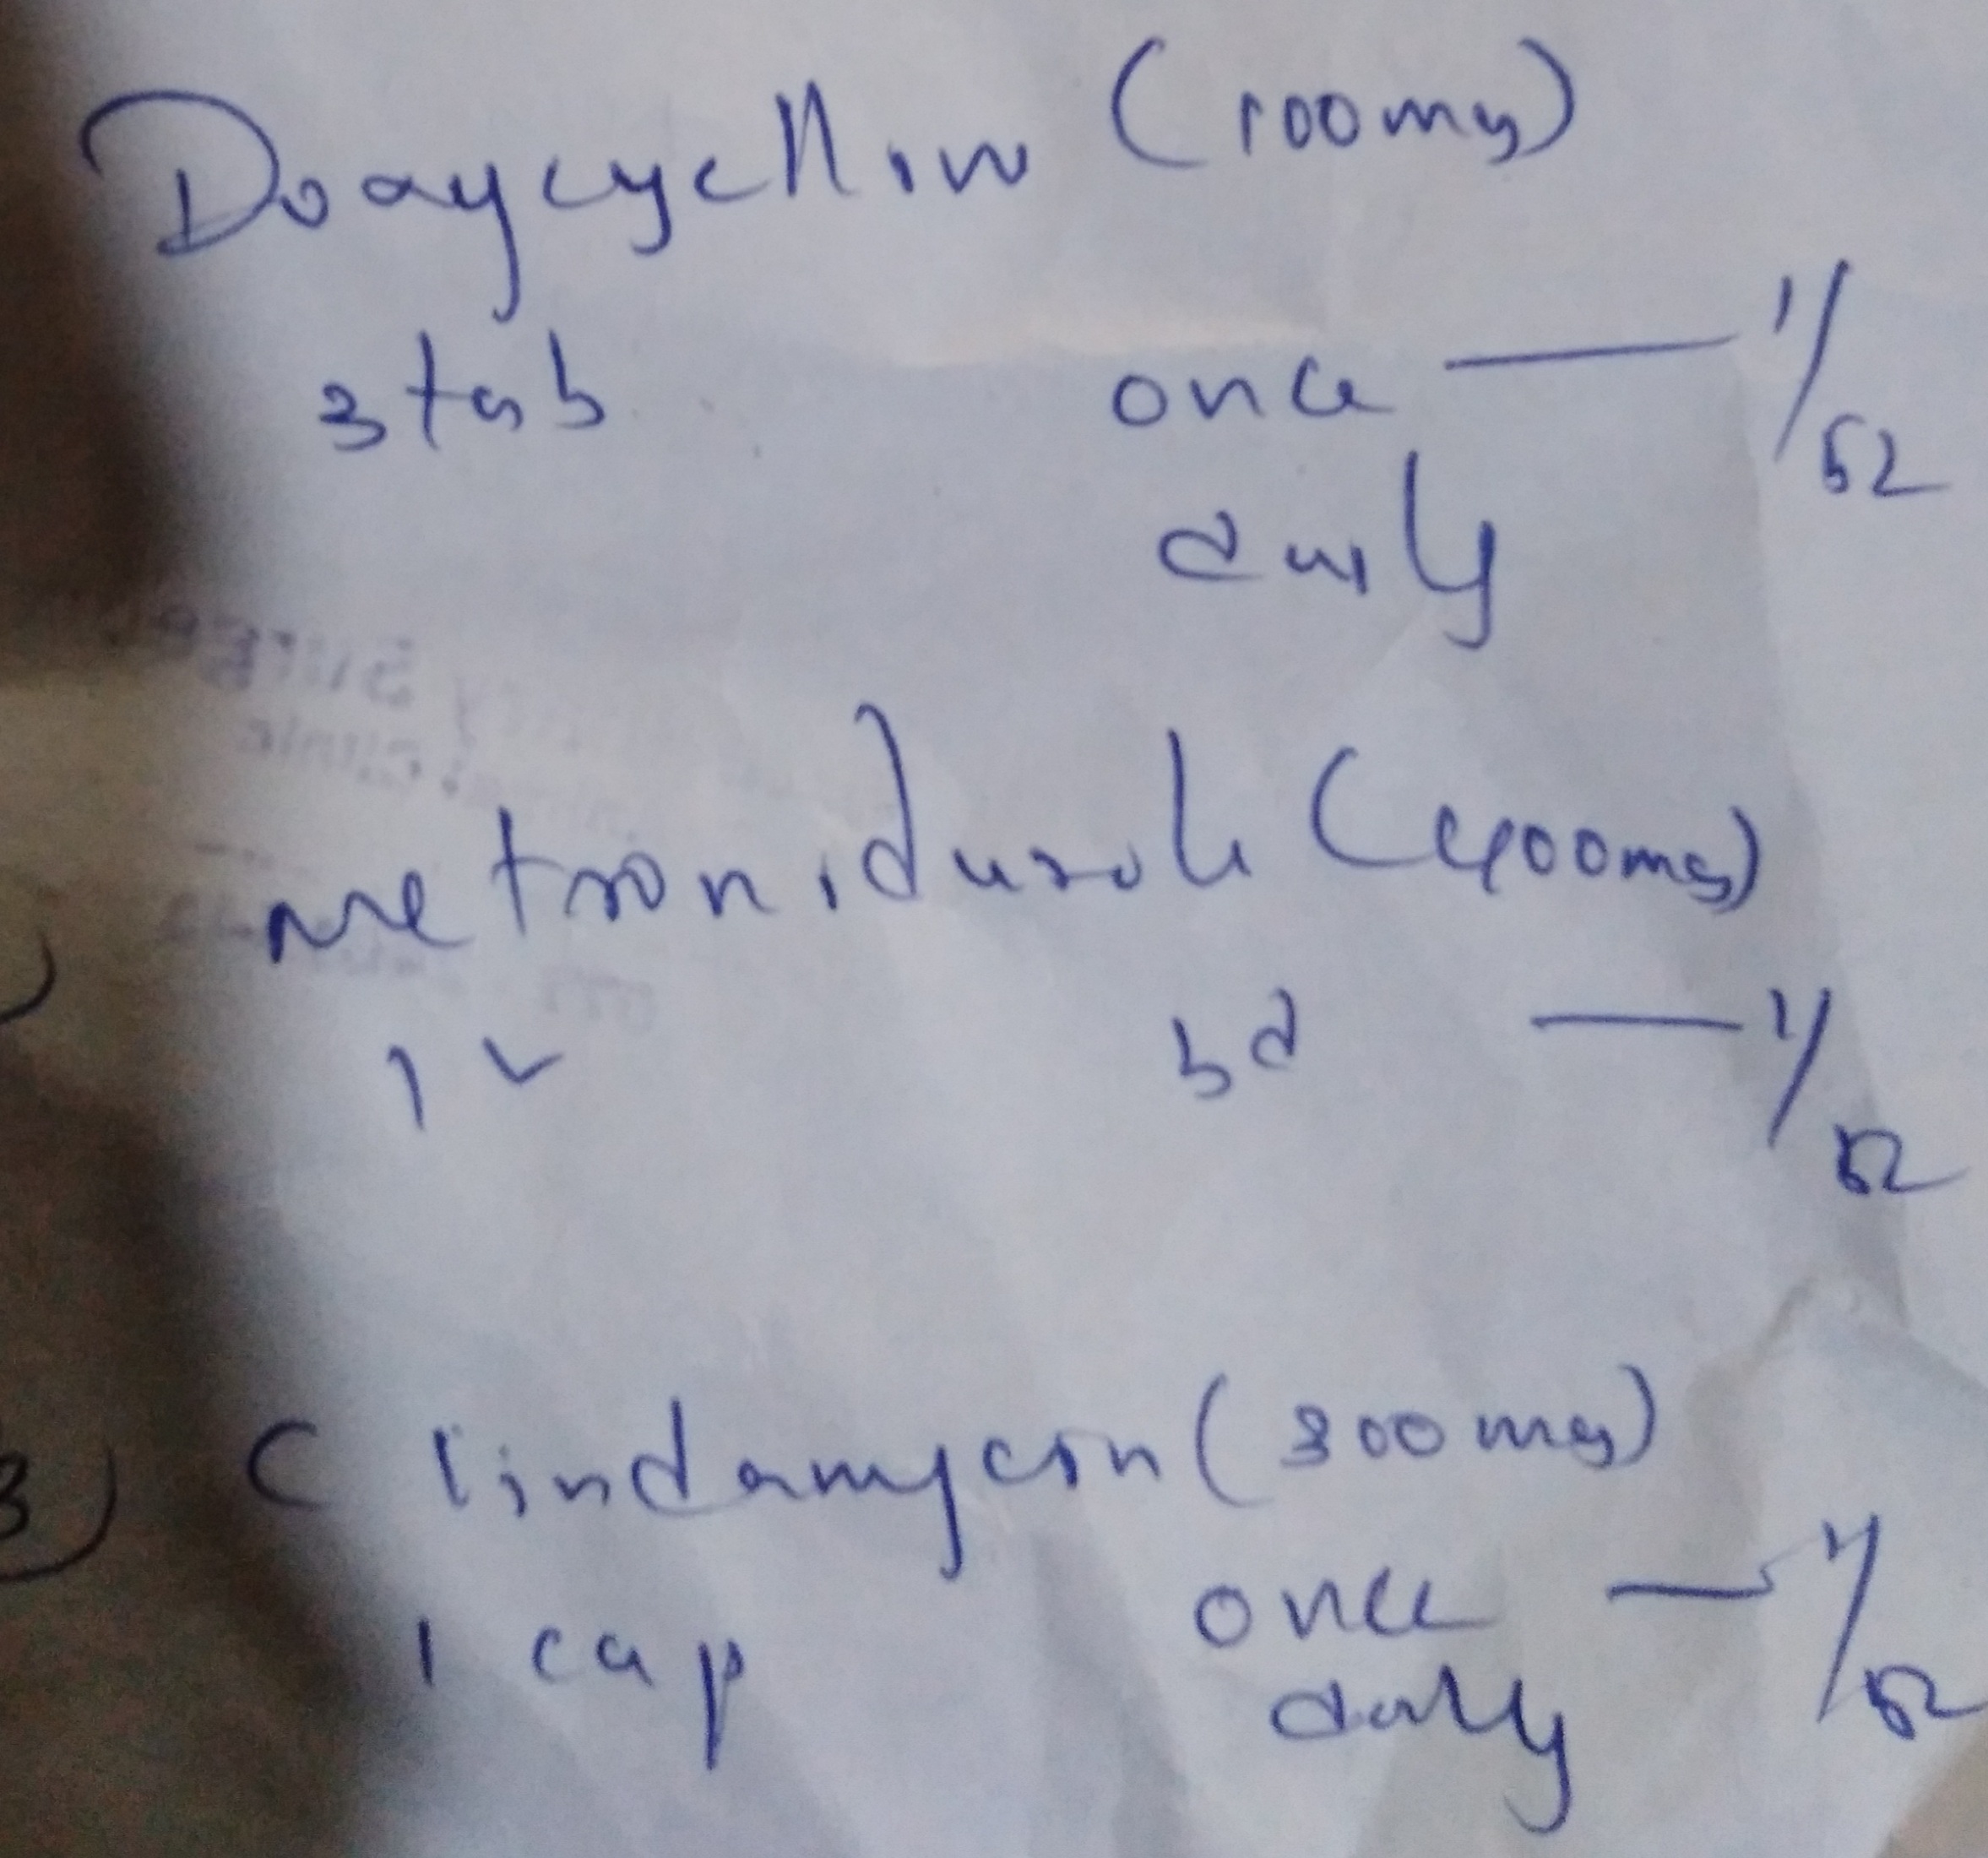 Doxycycllin (100mg)
3 tab once — 1/52
daily
metronidazole (400mg)
1 ✓ bd — 1/52
3) Clindamycin (300mg)
1 cap once — 1/52
daily